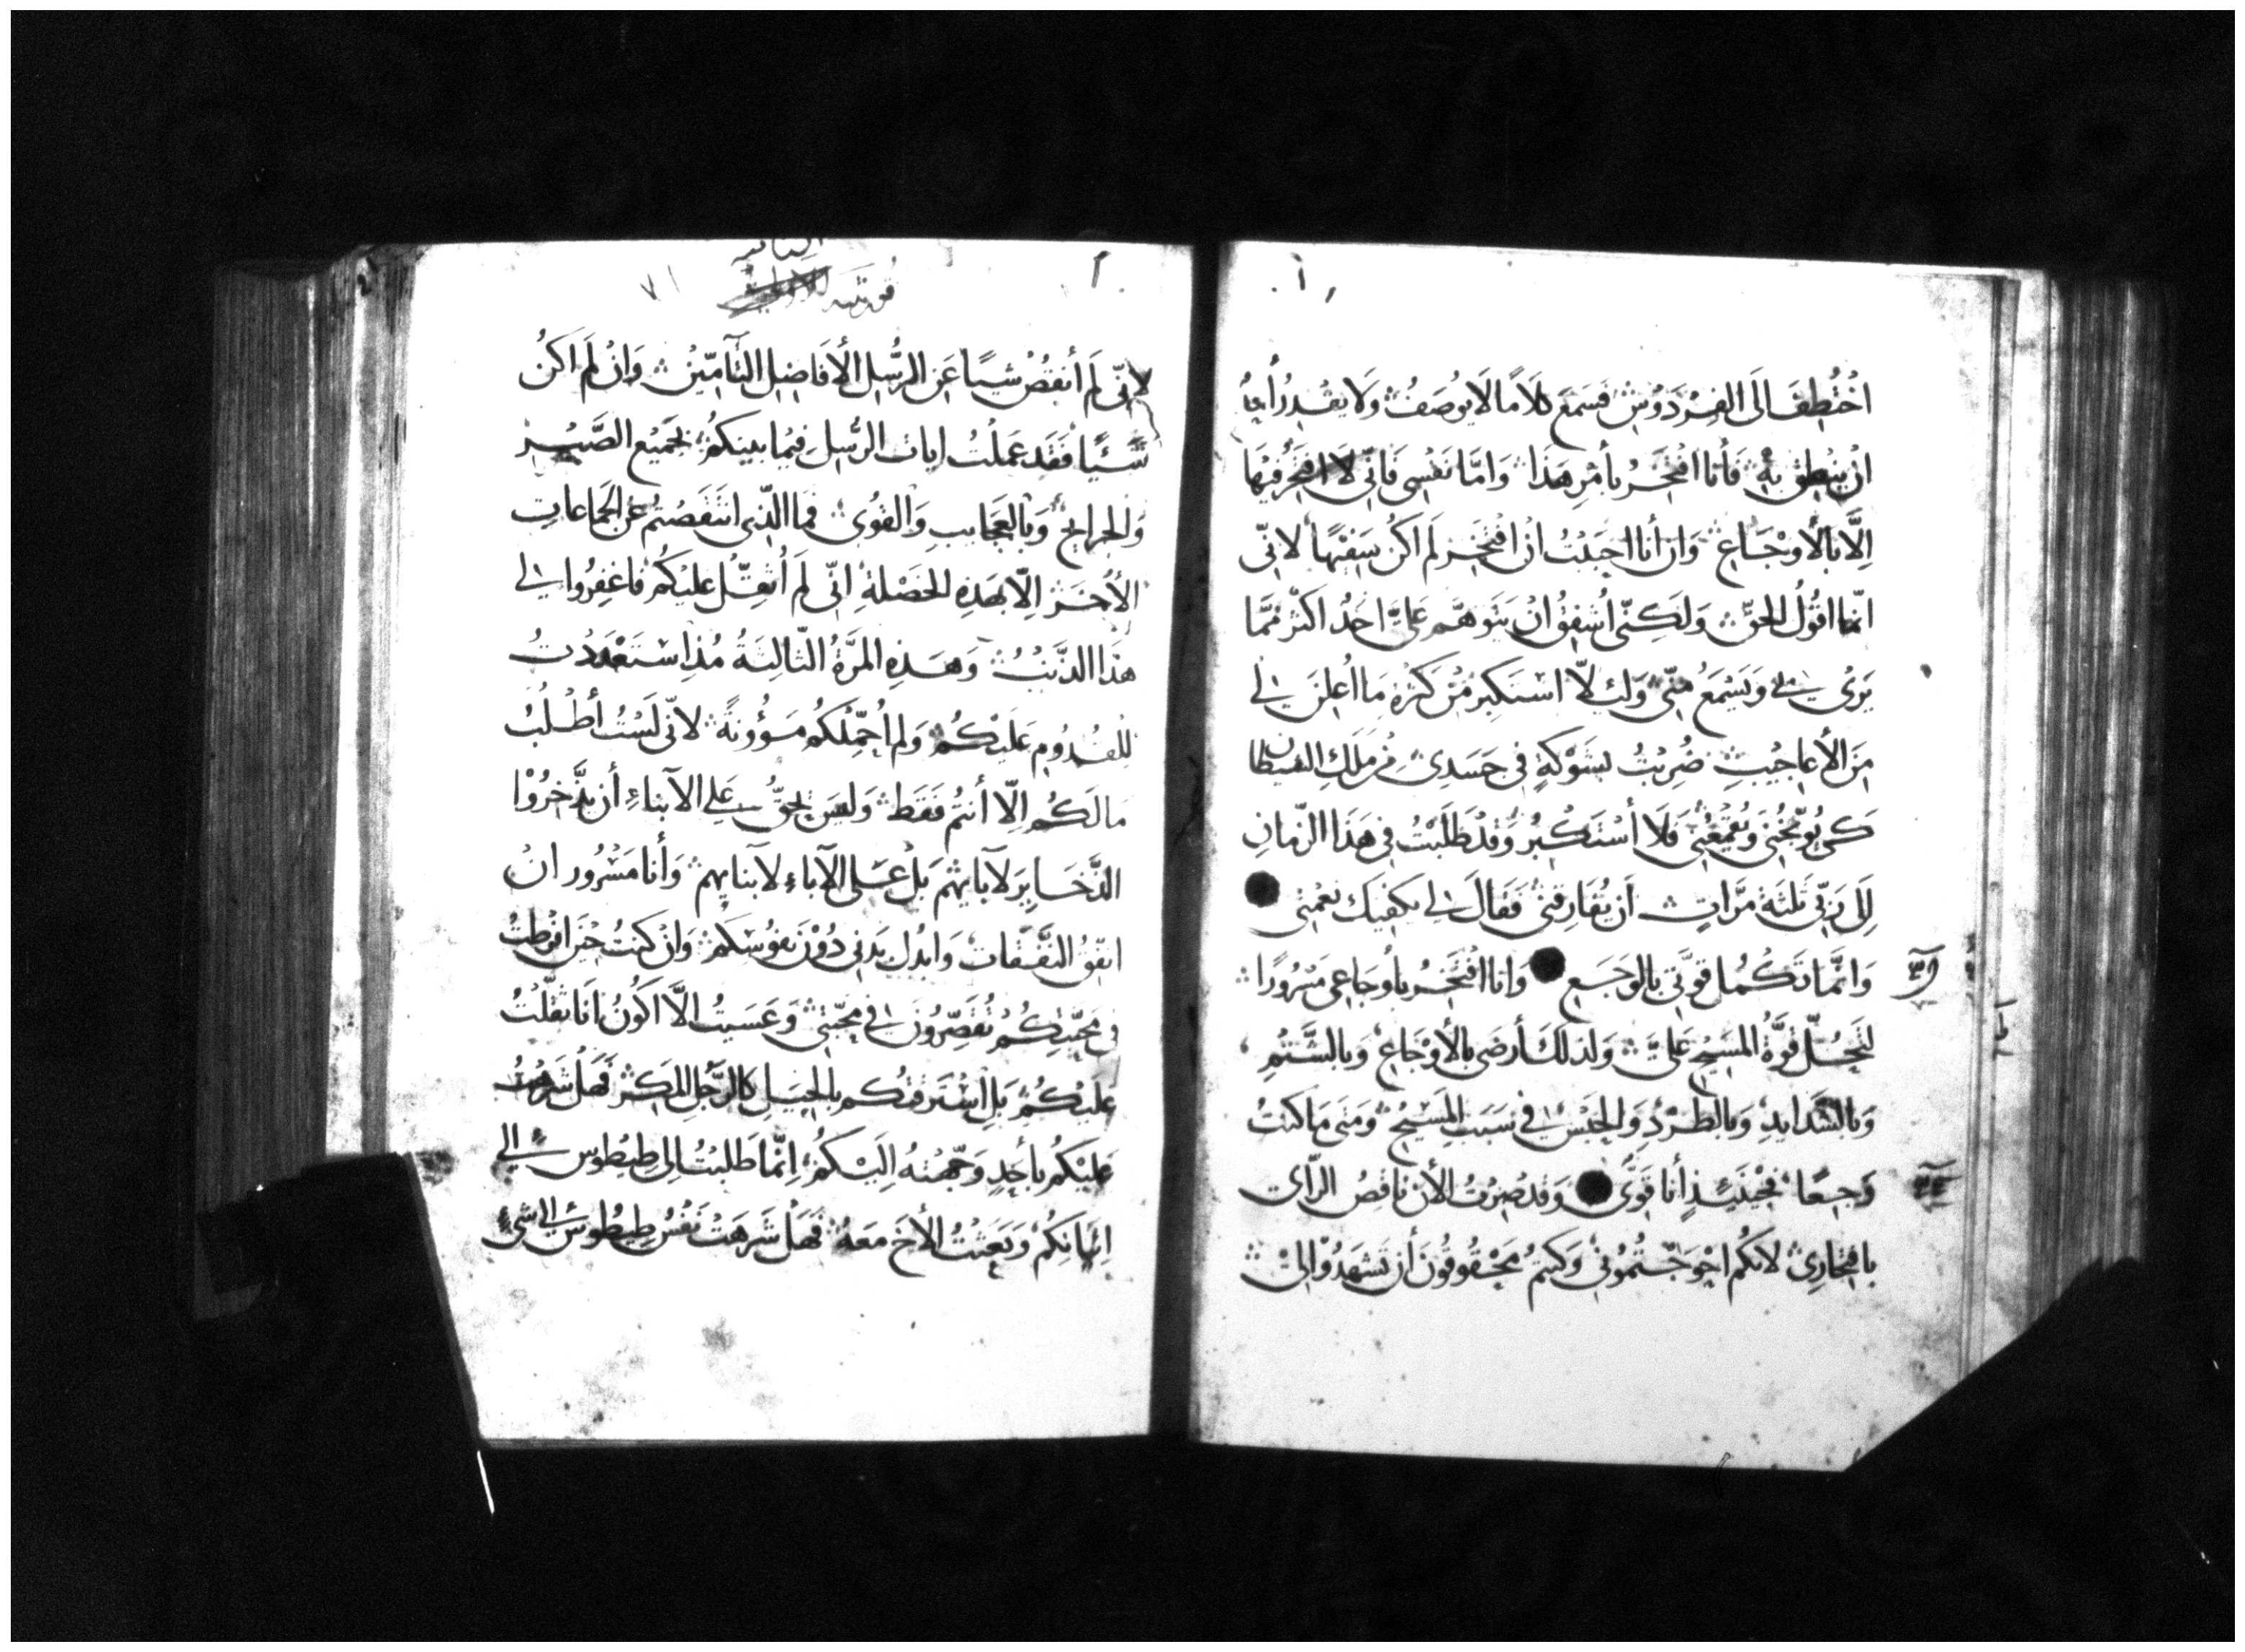 اخْتُطِفَ الَى الفِرْدَوْسِ فسَمِعَ كلَامًا لَا يُوصَفُ وَلَا يقْدِرُ أحدٌ
انْ ينْطِقَ بِهِ فَأنا افْتَخِرُ بأمْرِ هَذَا وَامَّا نَفْسِى فَانّى لَا افْتَخِرُ فيْهَا
اِلَّا بالأَوْجَاعِ وَان أنا احبَبْتُ انْ افْتَخِرَ لَم اكُن سَفِيْهًا لانّى
انّما اقُولُ الحقّ وَلَكِنّى اُشفِقُ انْ يَتَوَهَّمَ عَلىَّ احَدٌ اكثَرَ مِمَّا
يَرَى فىَّ وَيَسْمَعُ مِنّى وَلِئلّا اسْتَكبِرَ مِنْ كثرَةِ مَا اُعْلِنَ لى
مِنَ الأعاجِيْبِ ضُرِبْتُ بشَوْكَةٍ فى جَسَدِى مِنْ مَلَكِ الشيطان
كى يُوَبّخُنِى وَيُقمِعُنِى فَلَا أسْتَكبِرُ وَقَدْ طَلَبْتُ فى هَذَا الزّمانِ
الى رَبّى ثلثَة مرَّاتٍ أن يُفَارِقَنِى فَقَالَ لى يكفيك نعْمتِى
وَانَّمَا تَكْمُل قوَّتى بالوَجَعِ وَانا افْتَخِرُ بأوجَاعِى مَسْرُورًا
لتَحُلّ قوَّةُ المَسيْحِ عَلىَّ وَلذلكَ أرضَى بالأَوْجَاعِ وَبالشَّتْمِ
وَبالشّدَايدِ وَبالطّرْدِ وَالحَبْسِ فى سَبَبِ المَسِيْحِ وَمَتى مَا كنتُ
وَجِعًا فحِيْنَئِذٍ أنا قَوِىٌّ وَقَد صِرْتُ الأن نَاقِصُ الرّاى
بافتِخارِى لانكُم احْوَجْتُمُونى وَكنتُم مَحْقُوقُونَ أن تَشهَدُوْا لى
قورنثيه الثانيه
لانّى لَم أنقُصْ شيئًا عَنِ الرُّسُلِ الأفاضِلِ التّآمّيْن وَانْ لَم اكُنْ
شَيْئًا فَقَد عَملْتُ ايات الرّسُلِ فِيْما بينكُمْ بجَميْعِ الصّبْر
وَالجَرايحْ وَبالعَجَايبِ وَالقُوى فمَا الّذِى انتَقصْتُم عَن الجَماعاتِ
الأُخَرْ اِلّا بهَذِه الخَصْلَةِ انّى لَم اُثقِّلْ عليكُم فاغفِرُوا لى
هذَا الذَّنبْ وَهَذِهِ المَرَّةُ الثّالِثَةُ مُذِ اسْتَعْدَدْتُ
للقُدُومِ عَلَيْكُم وَلم اُحَمِّلكُم مَؤُونَةً لانّى لَسْتُ أطْلُبُ
مَا لَكُم اِلّا أنتُم فَقَط وَليسَ يحقُّ على الأبناءِ أن يذَّخِرُوْا
الذَّخَايِرَ لآبايهِم بَلْ عَلى الآباءِ لأبنايهِم وَأنا مَسْرُور ان
انفِقُ النَّفَقات وَابذُل بَدنى دُوْنَ نفوْسكُمْ وَانْ كنتُ حِيْنَ افرطتُ
فى مَحَبّتِكُم تُقَصِّرُونَ فى مَحبّتِى وَعَسَيتُ الَّا اكُونُ انَا ثقّلْتُ
عَليْكُم بَلِ اسْتَرَقتُكُم بالحِيَلِ كالرَّجُلِ المَكِر فَهَلْ شَرِهتُ
عَليْكُم بأحَدٍ وَجّهتُهُ اِلَيْكُم اِنّما طَلبْتُ الى طِيْطُوس فى
اتيانكُم وَبَعَثْتُ الأخَ مَعَهُ فَهَلْ شَرَهَتْ نَفْسُ طِيْطُوس الى شىءٍ